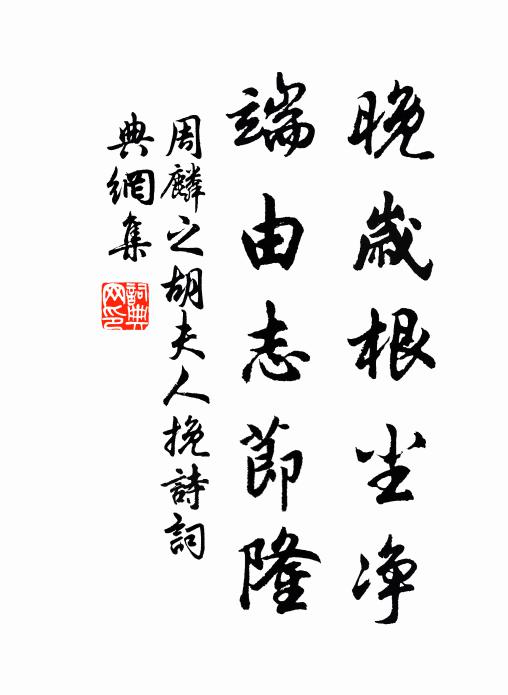 晚歲根尘净
端由志節隆
周麟之胡夫人挽詩詞
典網集
詞典
网印